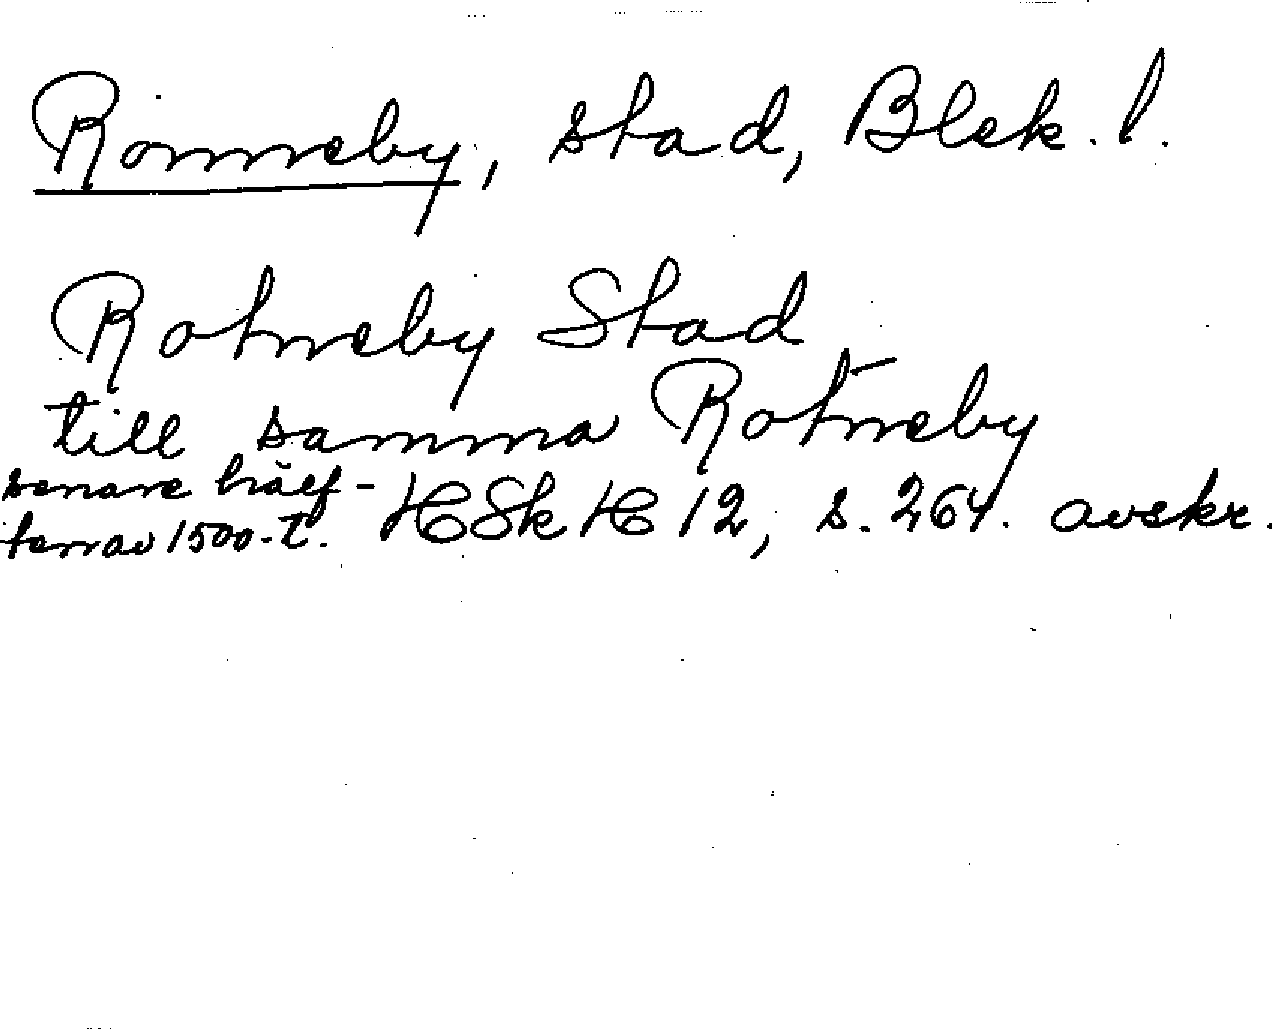 Ronneby, stad, Blek. l.
Rotneby Stad
till samma Rotneby
senare hälf-
ten av 1500-t. HSk H 12, s. 264. avskr.